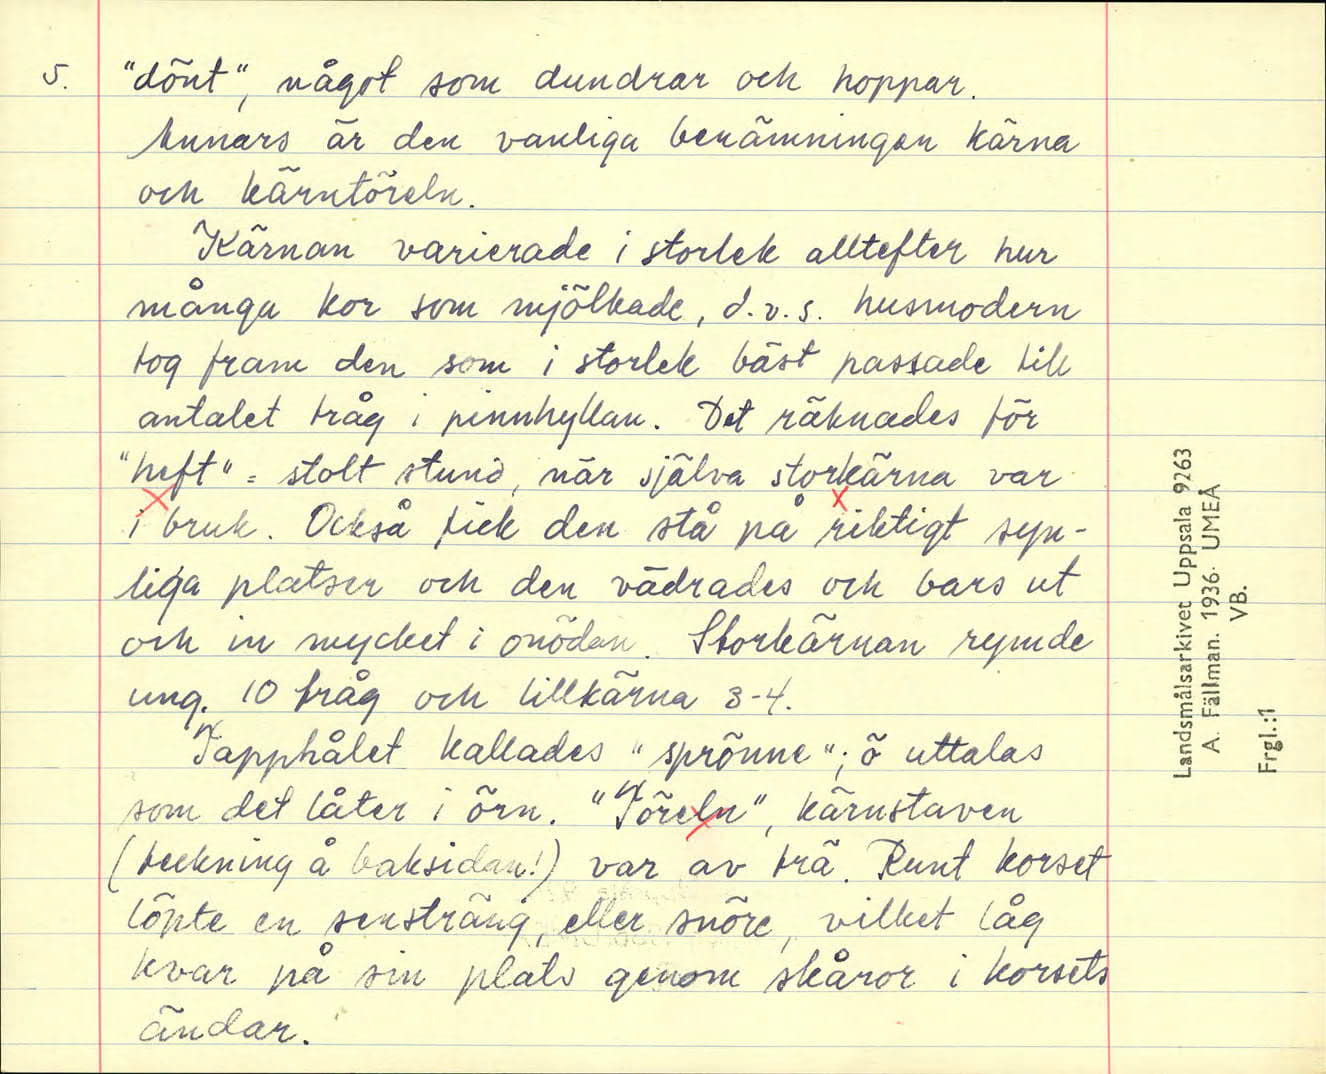 5. "dönt", något som dundrar och hoppar.
Annars är den vanliga benämningen kärna
och kärntöreln.
Kärnan varierade i storlek alltefter hur
många kor som mjölkade, d.v.s. husmodern
tog fram den som i storlek bäst passade till
antalet tråg i pinnhyllan. Det räknades för
"heft" = stolt stund, när själva storkärna var
i bruk. Också fick den stå på riktigt syn-
liga platser och den vädrades och bars ut
och in mycket i onödan. Storkärnan rymde
ung. 10 tråg och lillkärna 3-4.
Tapphålet kallades "sprönne"; ö uttalas
som det låter i örn. "Töreln", kärnstaven
(teckning å baksidan!) var av trä. Runt korset
löpte en sensträng, eller snöre, vilket låg
kvar på sin plats genom skåror i korsets
ändar.
Landsmålsarkivet Uppsala 9263
A. Fällman. 1936. UMEÅ
VB.
Frgl.:1